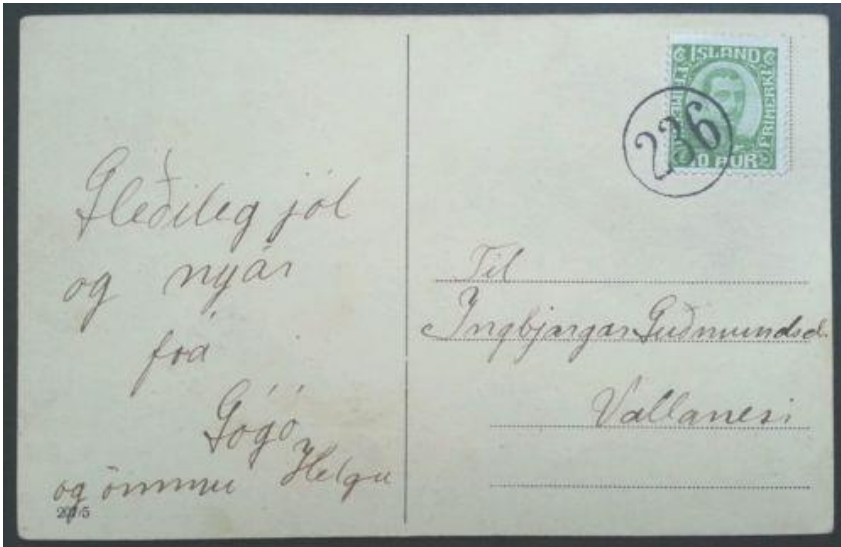 Gleðileg jól
og nyár
frá
Gógó
og ömmu Helgu
207/5
ÍSLAND
FRIMERKI
FRIMERKI
10 AUR
236
Til
Ingbjargar Guðmundsd.
Vallanesi